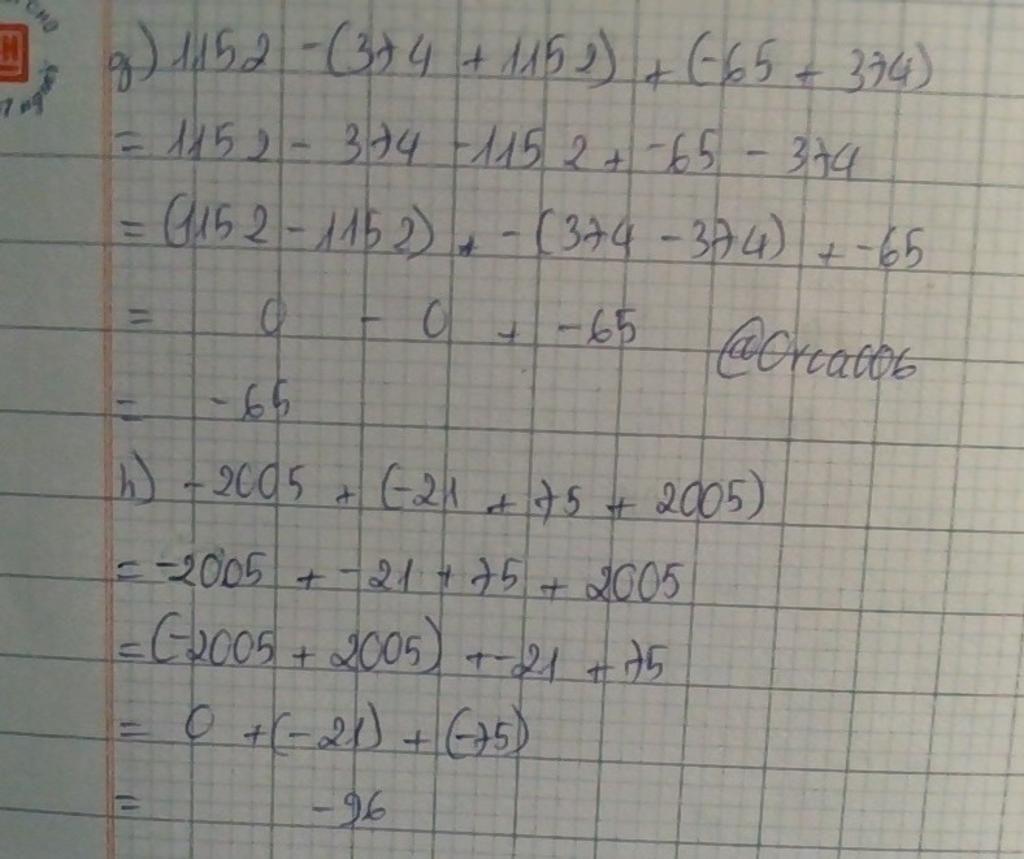 g) 1152 - (374 + 1152) + (-65 + 374)
= 1152 - 374 - 1152 + -65 - 374
= (1152 - 1152) + - (374 - 374) + -65
= 0 - 0 + -65
@Orcacob
= -65
h) -2005 + (-21 + 75 + 2005)
= -2005 + -21 + 75 + 2005
= (-2005 + 2005) + -21 + 75
= 0 + (-21) + (-75)
= -96